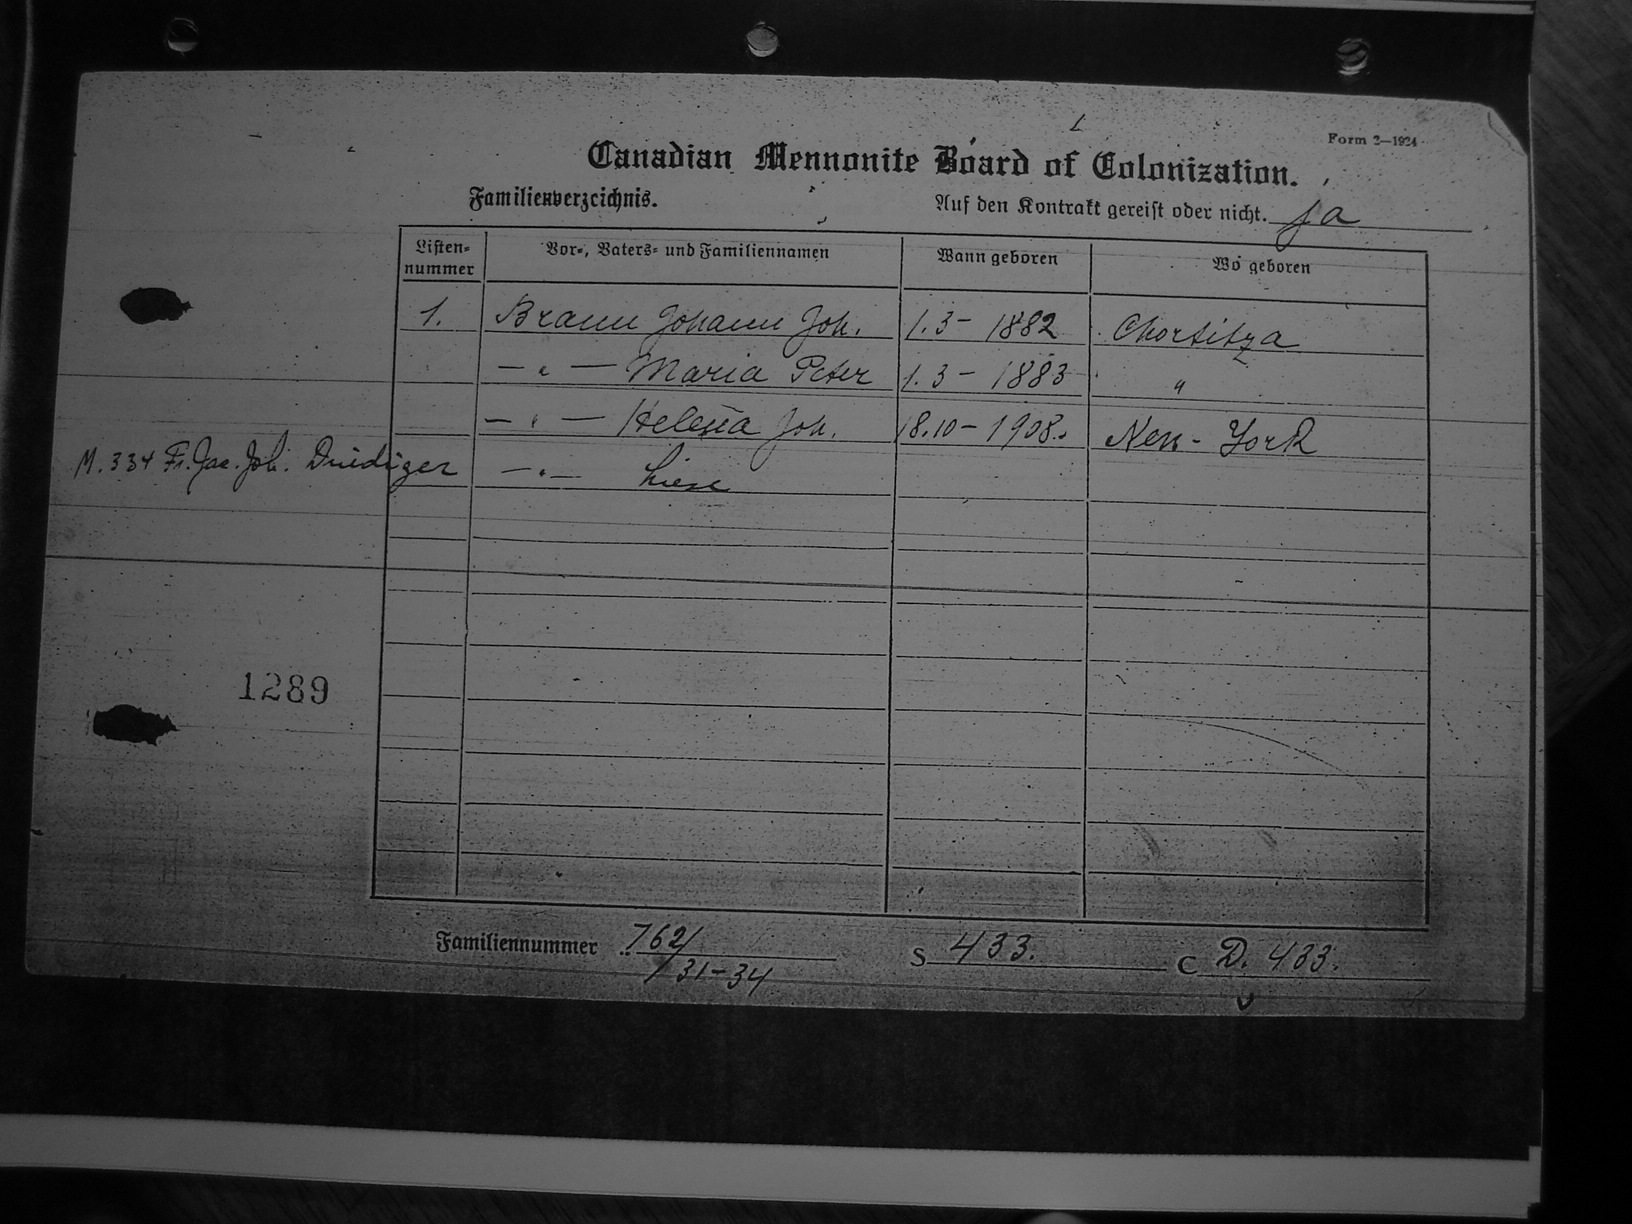 Form 2—1924
Canadian Mennonite Board of Colonization.
Familienverzeichnis.
Auf den Kontrakt gereist oder nicht. ja
Listen-nummer Vor-, Vaters- und Familiennamen Wann geboren Wo geboren
1. Braun Johann Joh. 1.3- 1882 Chortitza
— " — Maria Peter 1.3- 1883 "
— " — Helena Joh. 18.10-1908. New-York
M. 334 Fr. Jac. Joh. Driediger — " — Liese
1289
Familiennummer 762/ S 433. C D. 433.
/31-34